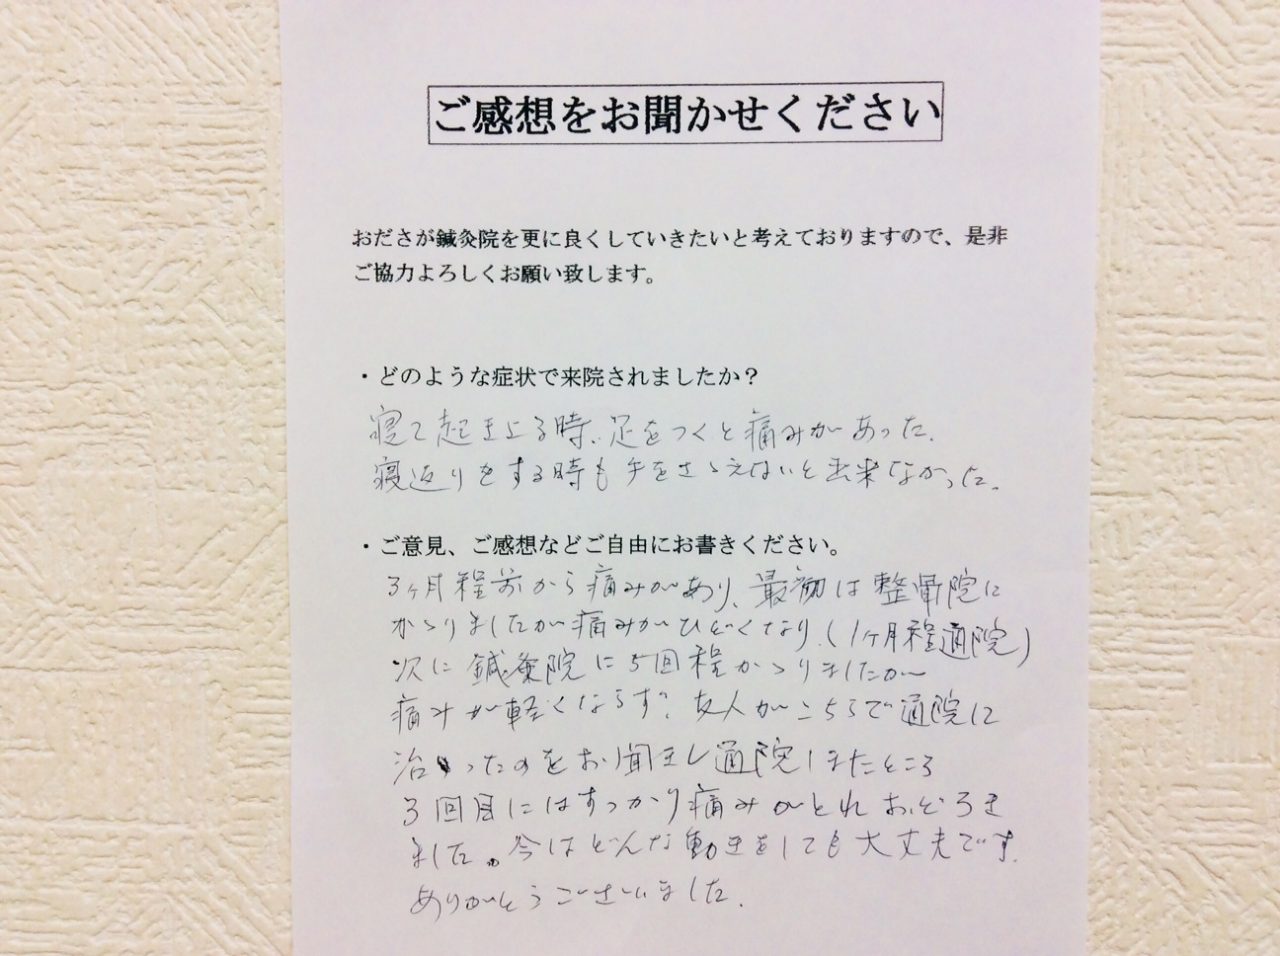 ご感想をお聞かせください
おださが鍼灸院を更に良くしていきたいと考えておりますので、是非
ご協力よろしくお願い致します。
・どのような症状で来院されましたか?
寝て起き上る時、足をつくと痛みがあった。
寝返りをする時も手をさゝえないと出来なかった。
・ご意見、ご感想などご自由にお書きください。
3ヶ月程前から痛みがあり、最初は整骨院に
かゝりましたが痛みがひどくなり、(1ヶ月程通院)
次に鍼灸院に5回程かゝりましたが
痛みが軽くならず、友人がこちらで通院に
治ったのをお聞きし通院しましたところ
3回目にはすっかり痛みがとれおどろき
ました。今はどんな動きをしても大丈夫です。
ありがとうございました。